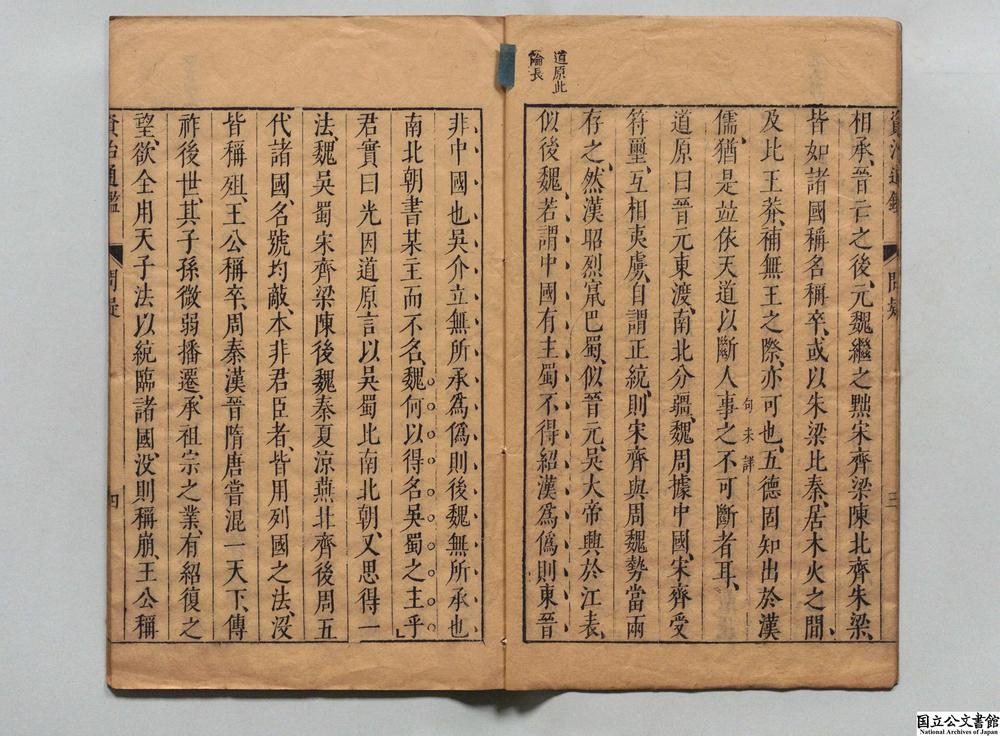 道原此
論長
相承晉亡之後元魏繼之黜宋齊梁陳北齊朱梁
皆如諸國稱名稱卒或以朱梁比秦居木火之間
及比王莽補無王之際亦可也五德固知出於漢
句未詳
儒猶是竝依天道以斷人事之不可斷者耳
道原曰晉元東渡南北分疆魏周據中國宋齊受
符璽互相夷虜自謂正統則宋齊與周魏勢當兩
存之然漢昭烈竄巴蜀似晉元吳大帝興於江表
似後魏若謂中國有主蜀不得紹漢爲僞則東晉
資治通鑑
問疑
三
非中國也吳介立無所承爲僞則後魏無所承也
南北朝書某主而不名魏何以得名吳蜀之主乎
君實曰光因道原言以吳蜀比南北朝又思得一
法魏吳蜀宋齊梁陳後魏秦夏涼燕北齊後周五
代諸國名號均敵本非君臣者皆用列國之法沒
皆稱殂王公稱卒周秦漢晉隋唐嘗混一天下傳
祚後世其子孫微弱播遷承祖宗之業有紹復之
望欲全用天子法以統臨諸國沒則稱崩王公稱
資治通鑑
問疑
四
国立公文書館
National Archives of Japan